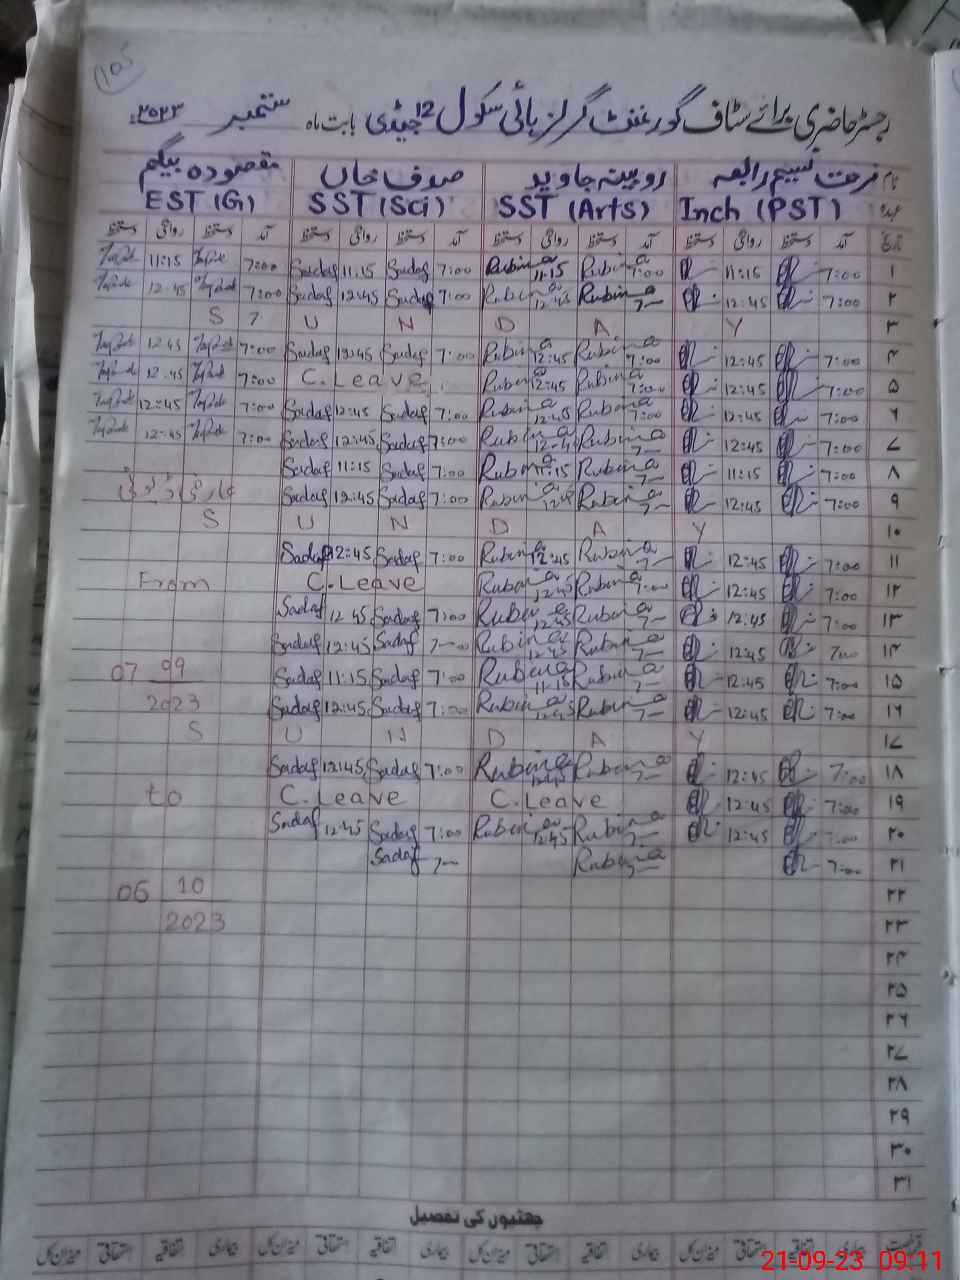 105
رجسٹر حاضری برائے سٹاف گورنمنٹ گرلز ہائی سکول 12 جیڈی بابت ماہ ستمبر ۲۰۲۳ء
نام فرحت نسیم رابعہ روبینہ جاوید صدف خاں مقصودہ بیگم
عہدہ Inch (PST) SST (Arts) SST (Sci) EST (G)
تاریخ آمد دستخط روانگی دستخط آمد دستخط روانگی دستخط آمد دستخط روانگی دستخط آمد دستخط روانگی دستخط
۱ 7:00 11:15 7:00 Rubina 11:15 Rubina 7:00 Sadaf 11:15 Sadaf 7:00 11:15
۲ 7:00 12:45 7- Rubina 12:45 Rubina 7:00 Sadaf 12:45 Sadaf 7:00 12:45
S U N D A Y ۳
۴ 7:00 12:45 7:00 Rubina 12:45 Rubina 7:00 Sadaf 12:45 Sadaf 7:00 12:45
۵ 7:00 12:45 7:00 Rubina 12:45 Rubina C.Leave 7:00 12:45
۶ 7:00 12:45 7:00 Rubina 12:45 Rubina 7:00 Sadaf 12:45 Sadaf 7:00 12:45
۷ 7:00 12:45 7- Rubina 12:45 Rubina 7:00 Sadaf 12:45 Sadaf 7:00 12:45
۸ 7:00 11:15 7- Rubina 11:15 Rubina 7:00 Sadaf 11:15 Sadaf
۹ 7:00 12:45 7- Rubina 12:45 Rubina 7:00 Sadaf 12:45 Sadaf
S U N D A Y ۱۰
۱۱ 7:00 12:45 7- Rubina 12:45 Rubina 7:00 Sadaf 12:45 Sadaf
۱۲ 7:00 12:45 7:00 Rubina 12:45 Rubina C.Leave From
۱۳ 7:00 12:45 7- Rubina 12:45 Rubina 7:00 Sadaf 12:45 Sadaf
۱۴ 7:00 12:45 7- Rubina 12:45 Rubina 7-00 Sadaf 12:45 Sadaf
۱۵ 7:00 12:45 7- Rubina 11:15 Rubina 7:00 Sadaf 11:15 Sadaf 07 09
۱۶ 7:00 12:45 7- Rubina 12:45 Rubina 7:00 Sadaf 12:45 Sadaf 2023
S U N D A Y ۱۷
۱۸ 7:00 12:45 7- Rubina 12:45 Rubina 7:00 Sadaf 12:45 Sadaf
۱۹ 7:00 12:45 C.Leave C.Leave to
۲۰ 7:00 12:45 7- Rubina 12:45 Rubina 7:00 Sadaf 12:45 Sadaf
۲۱ 7:00 7- Rubina 7- Sadaf
۲۲ 06 10
۲۳ 2023
۲۴
۲۵
۲۶
۲۷
۲۸
۲۹
۳۰
۳۱
چھٹیوں کی تفصیل
بیماری اتفاقیہ استحقاقی میزان کل بیماری اتفاقیہ استحقاقی میزان کل بیماری اتفاقیہ استحقاقی میزان کل بیماری اتفاقیہ استحقاقی میزان کل
21-09-23 09:11